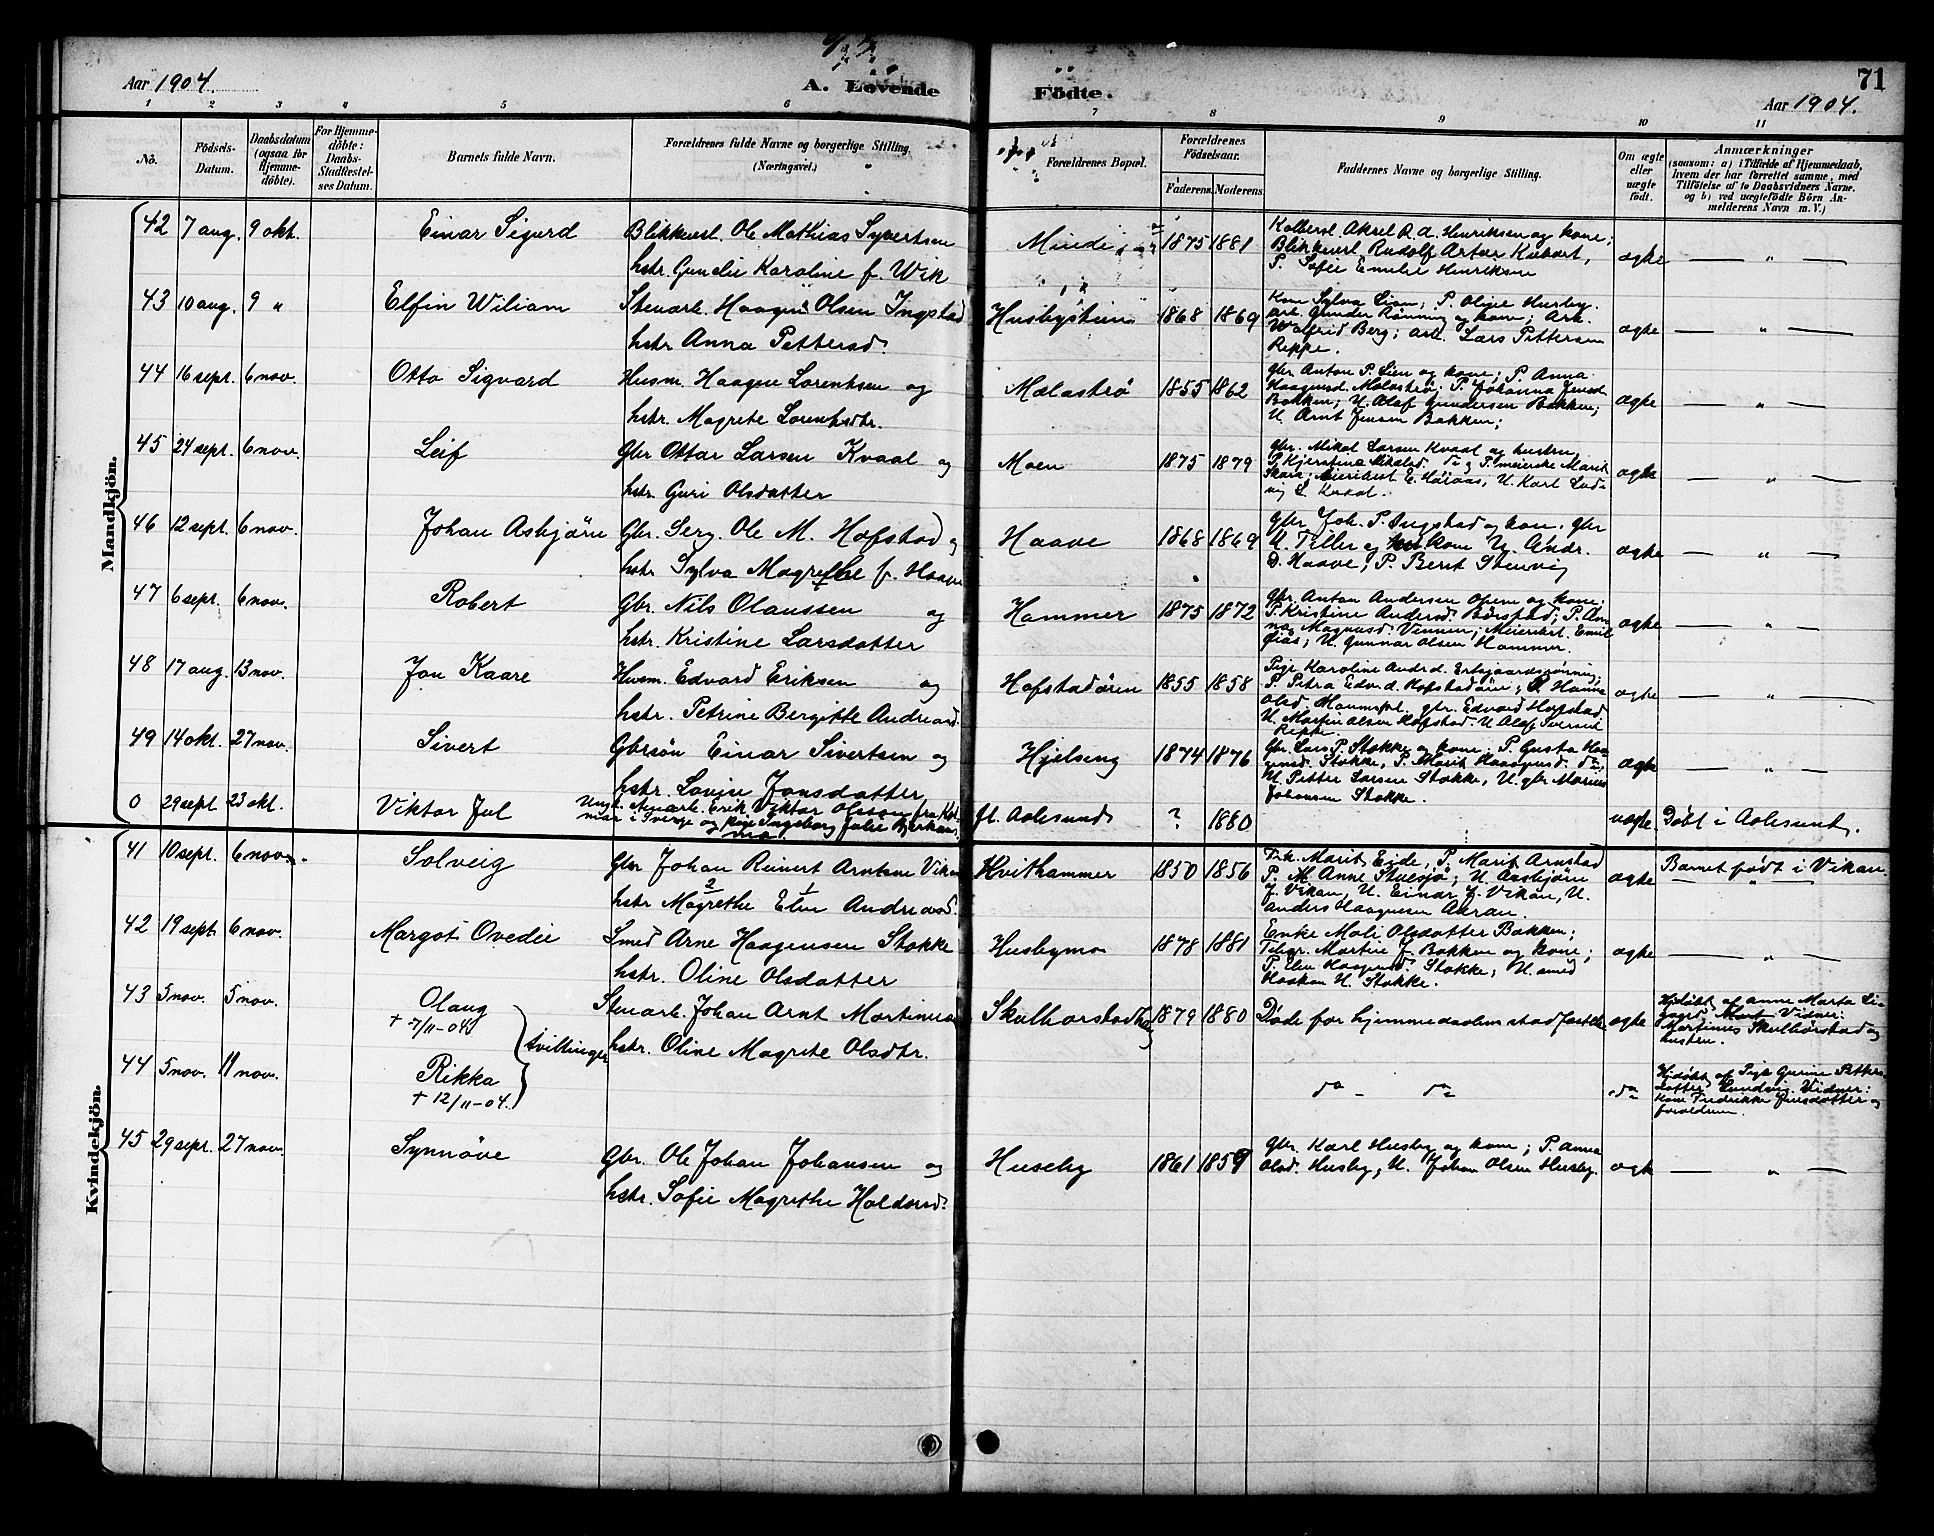 71
Aar 1904.
A. Levende
Födte.
Aar 1904.
1 2 3 4 5 6 7 8 9 10 11
No.
Födsels-Datum.
Daabsdatum (ogsaa for Hjemme-döbte).
For Hjemme-döbte: Daabs-Stadfæstel-ses Datum.
Barnets fulde Navn.
Forældrenes fulde Navne og borgerlige Stilling. (Næringsvei.)
Forældrenes Bopæl.
Forældrenes Födselsaar.
Faderens. Moderens.
Faddernes Navne og borgerlige Stilling.
Om ægte eller uægte födt.
Anmærkninger
(saasom: a) i Tilfælde af Hjemmedaab, hvem der har forrettet samme, med Tilföielse af to Daabsvidners Navne. og b) ved uægtefödte Börn An-melderens Navn m. V.)
Mandkjön.
42 7 aug. 9 okt. Einar Sigurd Blikkensl. Ole Mathias Syvertsen
hstr. Gunelie Karoline f. Wik
Minde 1875 1881
Aksel R. A. Henriksen og kone;
Blikkensl. Rudolf Artur Kubart,
P. Sofie Emelie Henriksen
ægte — " —
43 10 aug. 9 " Elfin Wiliam Stenarb. Haagen Olsen Ingstad
hstr. Anna Pettersd.
Husbystein 1868 1869
Kone Sylva Lian; P. Oline Husby.
Arb. Gunder Rönning og kone; Arb.
Walfrid Berg; arb. Lars Pettersen
Reppe.
ægte — " —
44 16 sept. 6 nov. Otto Sigvard Husm. Haagen Lorentsen og
hstr. Magrete Lorentsdtr.
Mælaströ 1855 1862
Gbr Anton P. Lien og kone; P. Anna
Haagensd. Mælaströ; P. Johanna Jensd.
Bakken; U. Olaf Gundersen Bakken;
U. Arnt Jensen Bakken;
ægte — " —
45 24 sept. 6 nov. Leif Gbr Ottar Larsen Kvaal og
hstr. Guri Olsdatter
Moen 1875 1879
Gbr. Mikal Larsen Kvaal og hustru,
P. meierske Marit
E. Höiaas, U. Karl Lud-
vig L. Kvaal.
ægte — " —
46 12 sept. 6 nov. Johan Asbjörn Gbr. Serg. Ole M. Hofstad og
hstr Sylva Magrethe f. Haave
Haave 1868 1869
Gbr Joh. P. Ingstad og kone. Gbr
U. Tiller og kone U. Andr.
O. Haave, P. Berit Stenvig
ægte — " —
47 6 sept. 6 nov. Robert Gbr. Nils Olaussen og
hstr. Kristine Larsdatter
Hammer 1875 1872
Gbr. Anton Andersen Opem og kone;
P. Kristine Andersd. Börstad; P. An-
na Magnusd. Vinnem; Meieribest. Emil
Öiås; U. Gunnar Olsen Hammer.
ægte — " —
48 17 aug. 13 nov. Jon Kaare Husm. Edvard Eriksen og
hstr. Petrine Bergitte Andreasd.
Hofstadören 1855 1858
Pige Karoline Andrd.
P. Petra Edvd. Hofstadören; P. Hanna
Olsd. gbr. Edvard Hofstad
U. Martin Olsen Hofstad. U. Olaf Iversen
Reppe.
ægte — " —
49 14 okt. 27 nov. Sivert Gbrsön Einar Sivertsen og
hstr. Lovise Jonsdatter
Hjelseng 1874 1876
Gbr. Lars P. Stokke og kone. P. Gusta Haa-
gensd. Stokke, P. Marit Haagensd. do;
U. Petter Larsen Stokke, U. gbr Marius
Johansen Stokke.
ægte — " —
0 29 sept. 23 okt. Viktor Jul Ungk. stenarb. Erik Viktor Olsson fra Kal-
mar i Sverge og pige Ingeborg Julie Bjerkan
fl. Aalesund ? 1880
uægte. Döbt i Aalesund.
Kvindekjön.
41 10 sept. 6 nov. Solveig Gbr Johan Reinert Arntsen Vikan
hstr Magrethe Elen Andreasd.
Kvithammer 1850 1856
Enk. Marit Eide, P. Marit Arnstad
P. M. Anne Stuesjö; U. Aasbjörn
J. Vikan, U. Einar J. Vikan, U.
Anders Haagensen Aaran.
ægte Barnet födt i Vikan.
— " —
42 19 sept. 6 nov. Margot Ovedie Smed Arne Haagensen Stokke
hstr. Oline Olsdatter
Husbymo 1878 1881
Enke Mali Olsdatter Bakken;
Martin J. Bakken og kone;
P. Elen Haagensd. Stokke; U. smed
Haakon H. Stokke.
ægte — " —
43 5 nov. 5 nov. Olaug
+ 7/11-04.
tvillinger
Stenarb. Johan Arnt Martinusen
hstr. Oline Magrete Olsdtr.
1879 1880 Döde för hjemmedaabens stadfæstelse ægte
Hjdöbt af Anne Marta
Vidner:
Martinus Skulbörstad og
hustru.
44 5 nov. 11 nov. Rikka
+ 12/11-04.
do - do do
Hjdöbt af Pige Gurine Petters-
datter Sundvig. Vidner:
Kone Fredrikke Jensdatter og
forældrene.
45 29 sept. 27 nov. Synnöve Gbr. Ole Johan Johansen og
hstr. Sofie Magrethe Haldorsd.
Huseby 1861 1859
Gbr. Karl Husby og kone; P. Anna
Olsd. Husby, U. Johan Olsen Husby.
ægte — " —